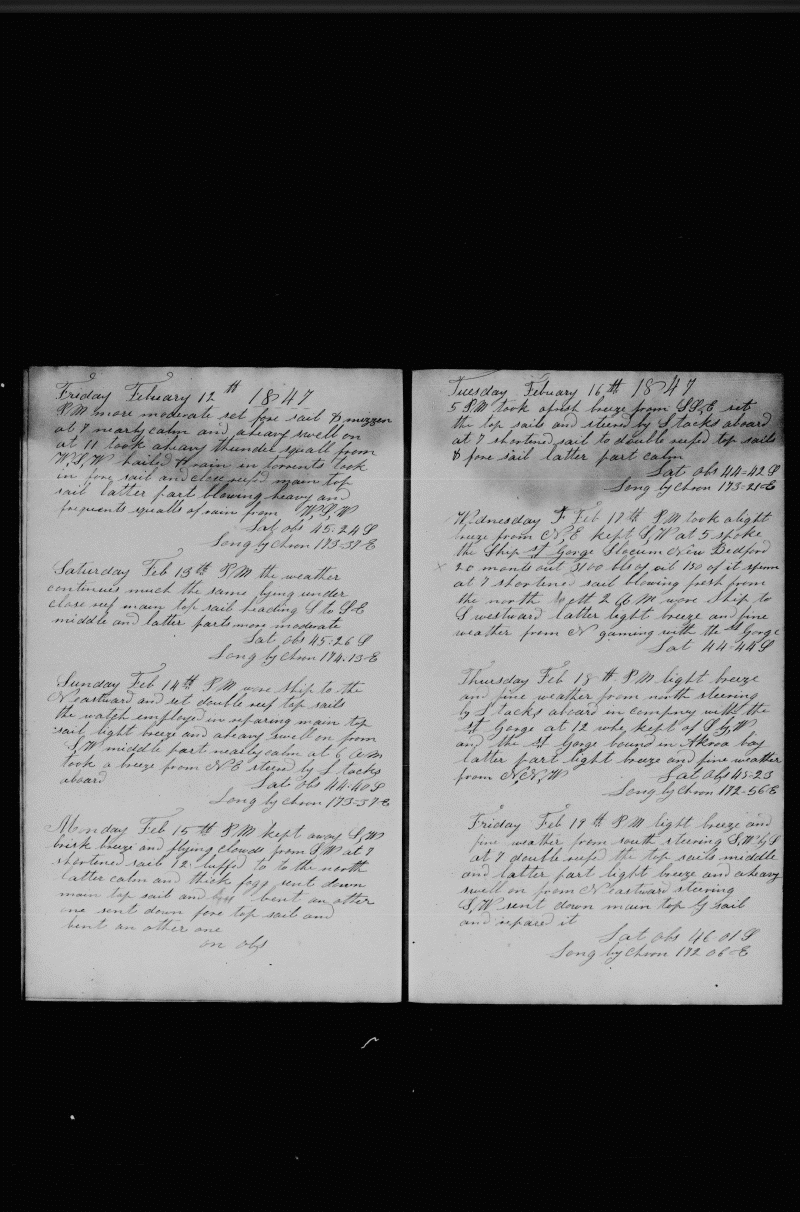 Friday Febuary 12th 1847
P.M more moderate set fore sail & mizzen
at 7 nearly calm and aheavy swell on
at 11 took aheavy thunder squall from
W,S,W hailed & rain in torrents took
in fore sail and close reefd main top
sail latter part blowing heavy and
frequents squalls of rain from W,S,W
Lat obs 45-24 S
Long by chron 173-37 E
Saturday Feb 13th P.M the weather
continues much the same lying under
close reef main top sail heading S to S E
middle and latter parts more moderate
Lat obs 45-26 S
Long by chron 174-13 E
Sunday Feb 14th P M wore ship to the
N eastward and set double reef top sails
the watch employed in reparing main top
sail light breeze and aheavy swell on from
S,W middle part nearly calm at 6 A M
took a breeze from N E steerd by L tacks
aboard
Lat obs 44-40 S
Long by chron 173-37 E
Monday Feb 15th P,M kept away S,W
brisk breeze and flying clouds from S,W at 7
shortened sail 12 luffed to to the north
latter calm and thick fogg sent down
main top sail and bent an other
one sent down fore top sail and
bent an other one
on obs
Tuesday Febuary 16th 1847
5 P.M took afresh breeze from S S,E set
the top sails and steerd by L tacks aboard
at 7 shortend sail to double reefed top sails
& fore sail latter part calm
Lat obs 44-42 S
Long by chron 173-21 E
Wednesday F Feb 17th P,M took alight
breeze from N,E kept S,W at 5 spoke
the Ship St Gorge Slocum New Bedford
x 20 monts out 3100 bbls of oil 150 of it sperm
at 7 shortened sail blowing fresh from
the north West 2 A M wore ship to
S westward latter light breeze and fine
weather from N gaming with the St Gorge
Lat 44-44 S
Thursday Feb 18th P,M light breeze
and fine weather from north steering
by L tacks aboard in company with the
St Gorge at 12 whe kept of S by W
and the St Gorge bound in Akroa bay
latter part light breeze and fine weather
from N,N,W Lat obs 45-23
Long by chron 172-56 E
Friday Feb 19th P M light breeze and
fine weather from south steering S,W by S
at 7 double reefd the top sails middle
and latter part light breeze and aheavy
swell on from N eastward steering
S,W sent down main top G sail
and repared it
Lat obs 46 01 S
Long by chron 172 06 E